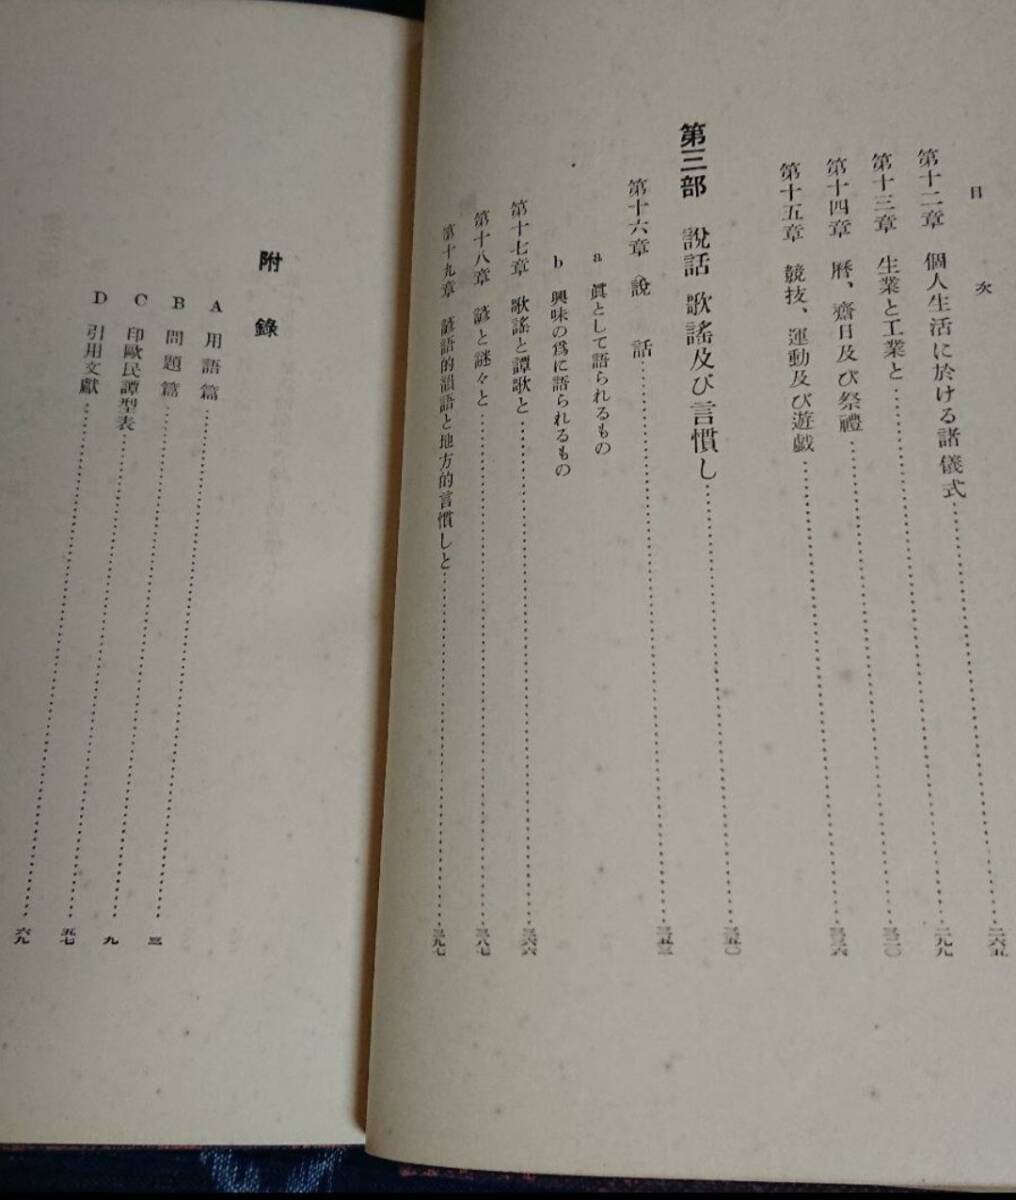 目次
第十二章 個人生活に於ける諸儀式……二六五
第十三章 生業と工業と……二九九
第十四章 曆、齋日及び祭禮……三二〇
第十五章 競技、運動及び遊戲……三三六
第三部 說話 歌謠及び言慣し……三五〇
第十六章 說話……三五三
a 眞として語られるもの
b 興味の爲に語られるもの
第十七章 歌謠と譚歌と……三六六
第十八章 諺と謎々と……三八七
第十九章 諺語的韻語と地方的言慣しと……三九七
附錄
A 用語篇……三
B 問題篇……九
C 印歐民譚型表……五七
D 引用文獻……六九